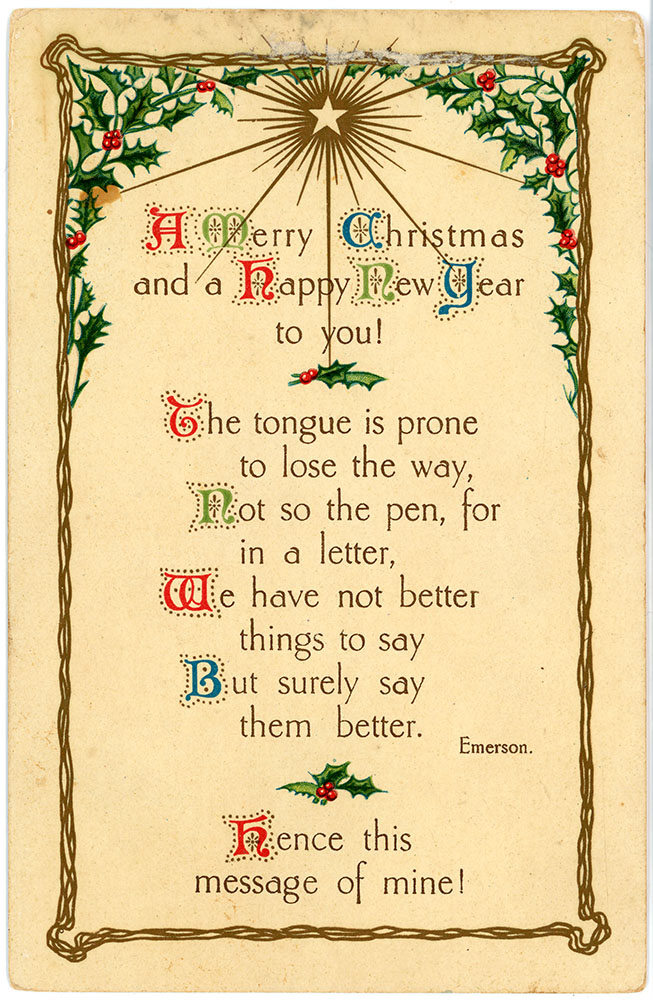 A Merry Christmas
and a Happy New Year
to you!
The tongue is prone
to lose the way,
Not so the pen, for
in a letter,
We have not better
things to say
But surely say
them better.
Emerson.
Hence this
message of mine!